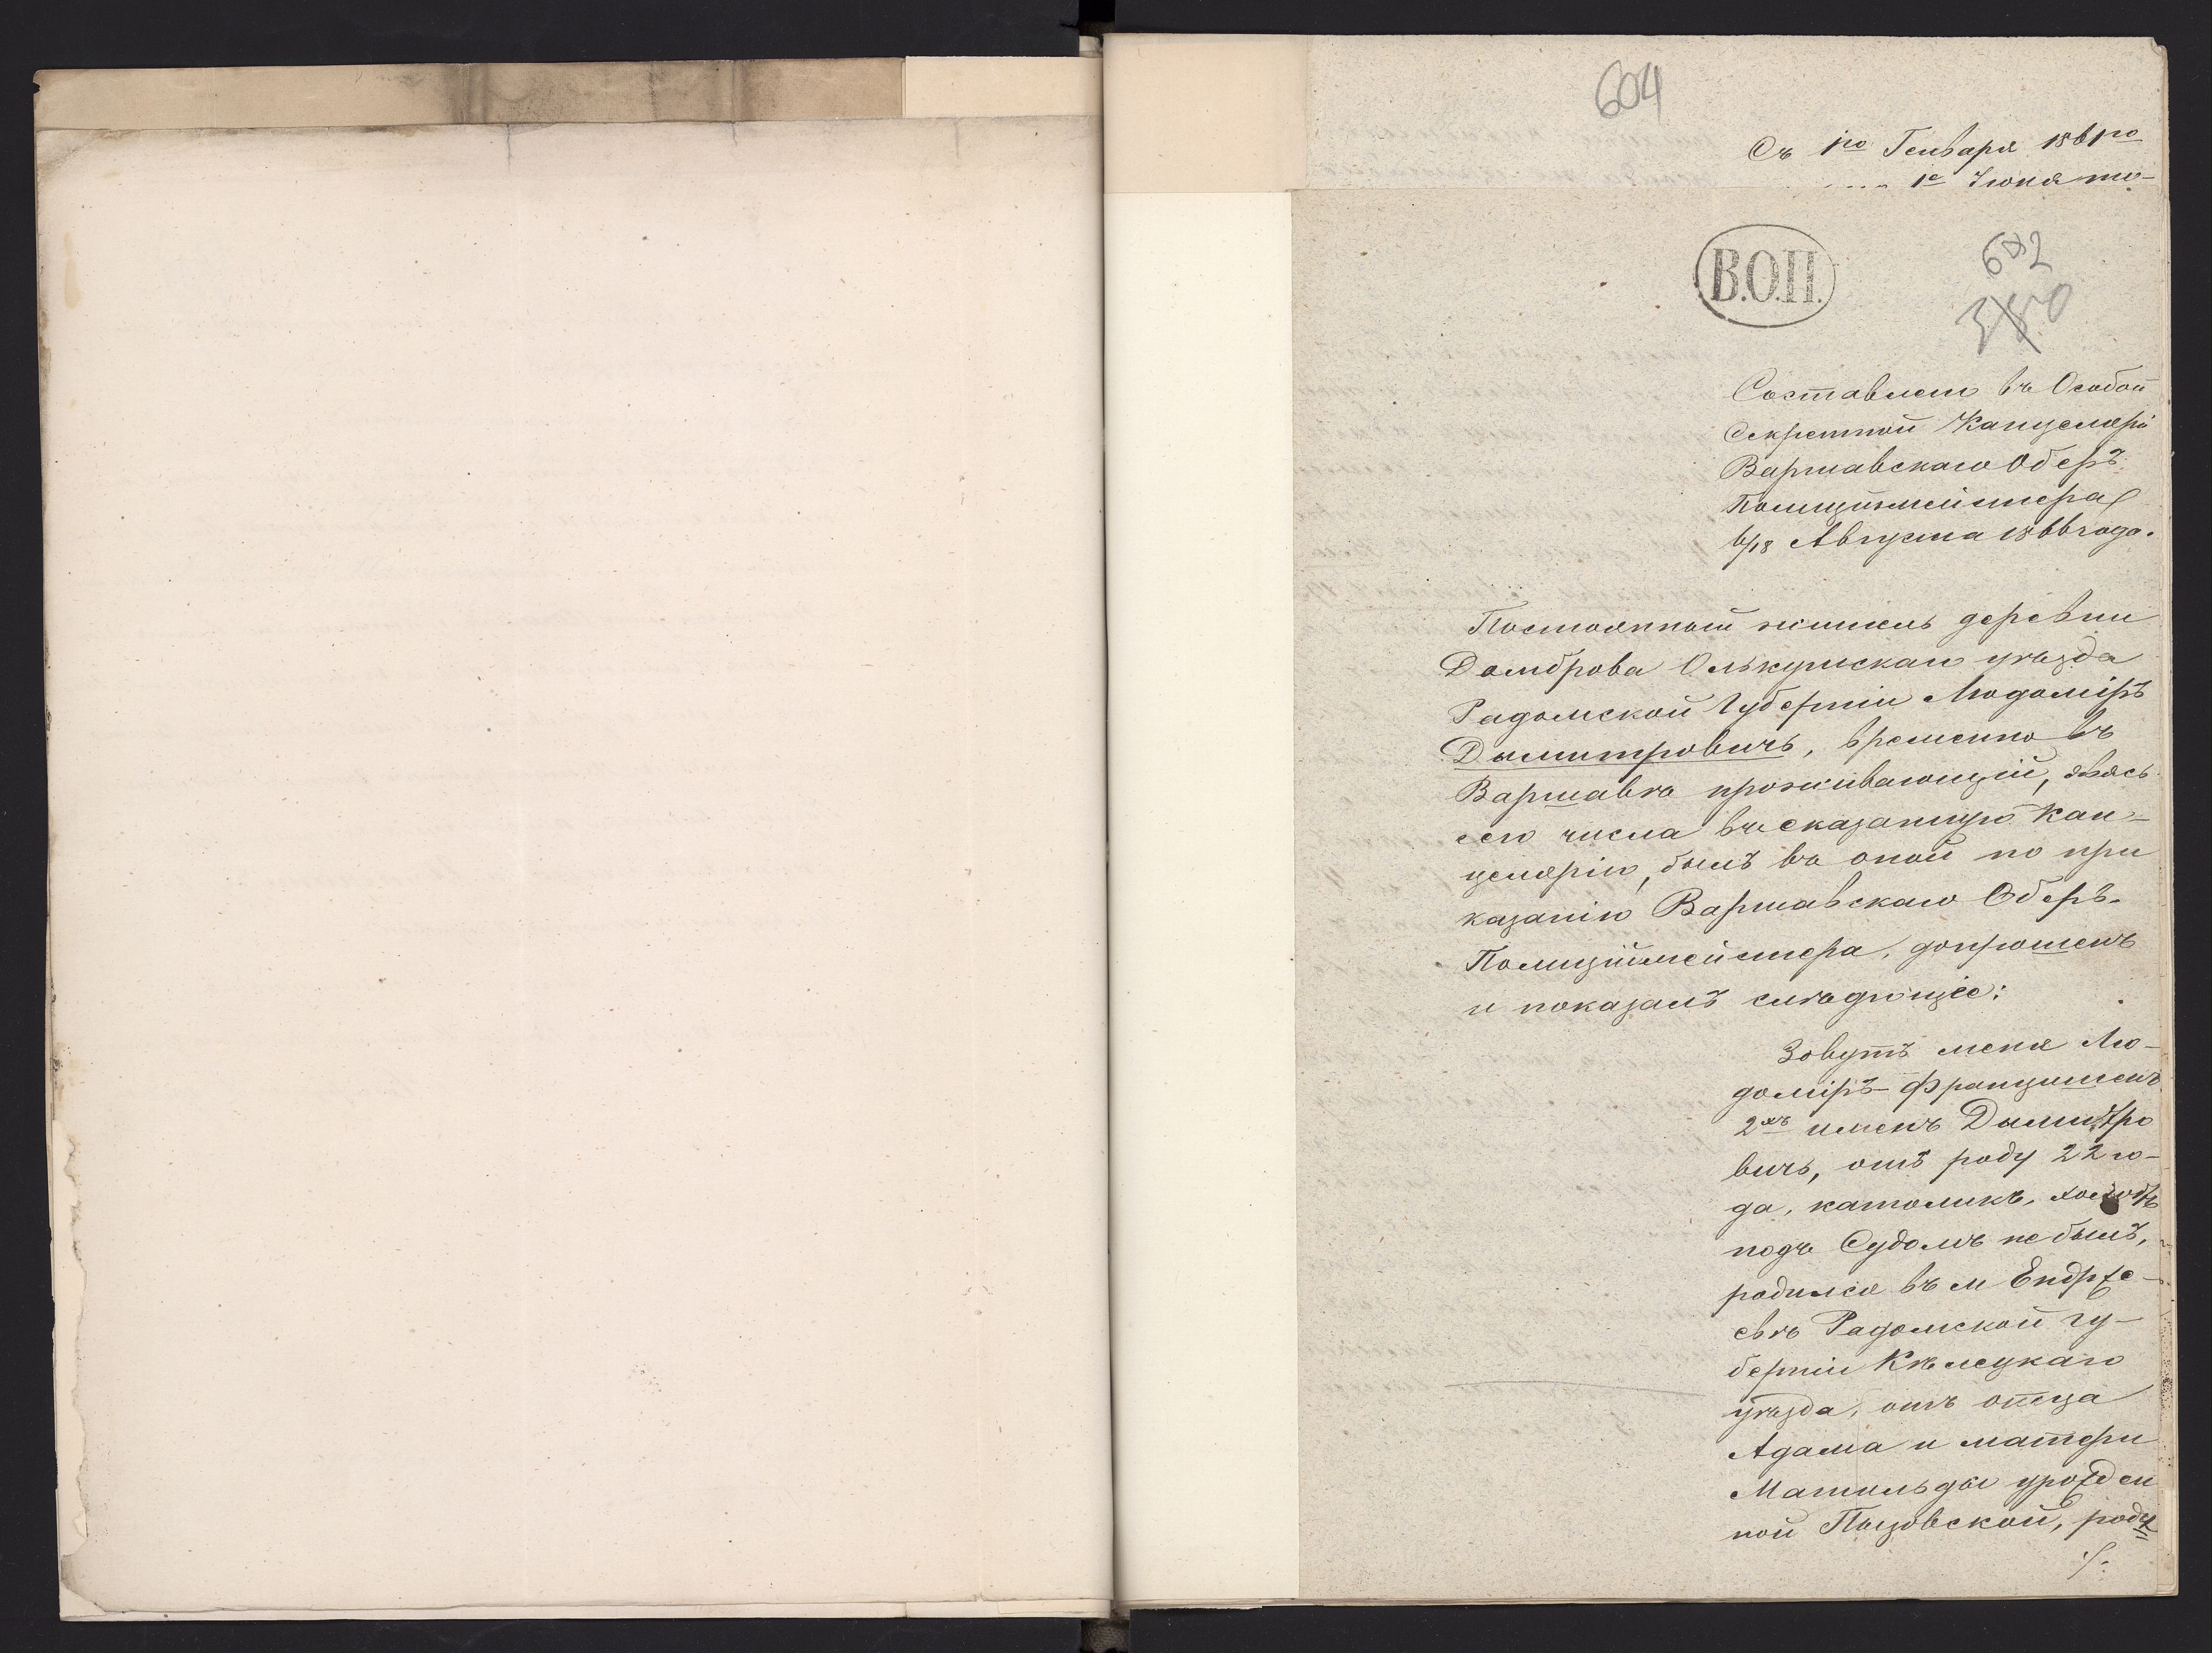 604
Съ 1го Генваря 1861го
1е Июня
В.О.П.
602
380
Составленъ въ Особой
Секретной Канцеляріи
Варшавскаго Оберъ
Полиційместера
6/18 Августа 1866 года.
Постоянный житель деревни
Домброва Олькушскаго уѣзда
Радомской Губерніи Людоміръ
Дымитровичъ, временно въ
Варшавѣ проживающій, явясь
сего числа въ сказанную Кан-
целярію, былъ въ оной по при
казанію Варшавскаго Оберъ-
Полиціймейстера, допрошенъ
и показалъ слѣдующіе:
Зовутъ меня Лю-
доміръ-Францишекъ
2хъ именъ Дымитро
вичъ, отъ роду 22 го-
да, католикъ, холостъ
подъ Судомъ не былъ,
родился въ м Ендрже-
евѣ Радомской гу-
берніи Кѣлецкаго
уѣзда, отъ отца
Адама и матери
Матильды урожден
ной Пызовской, роду
./.